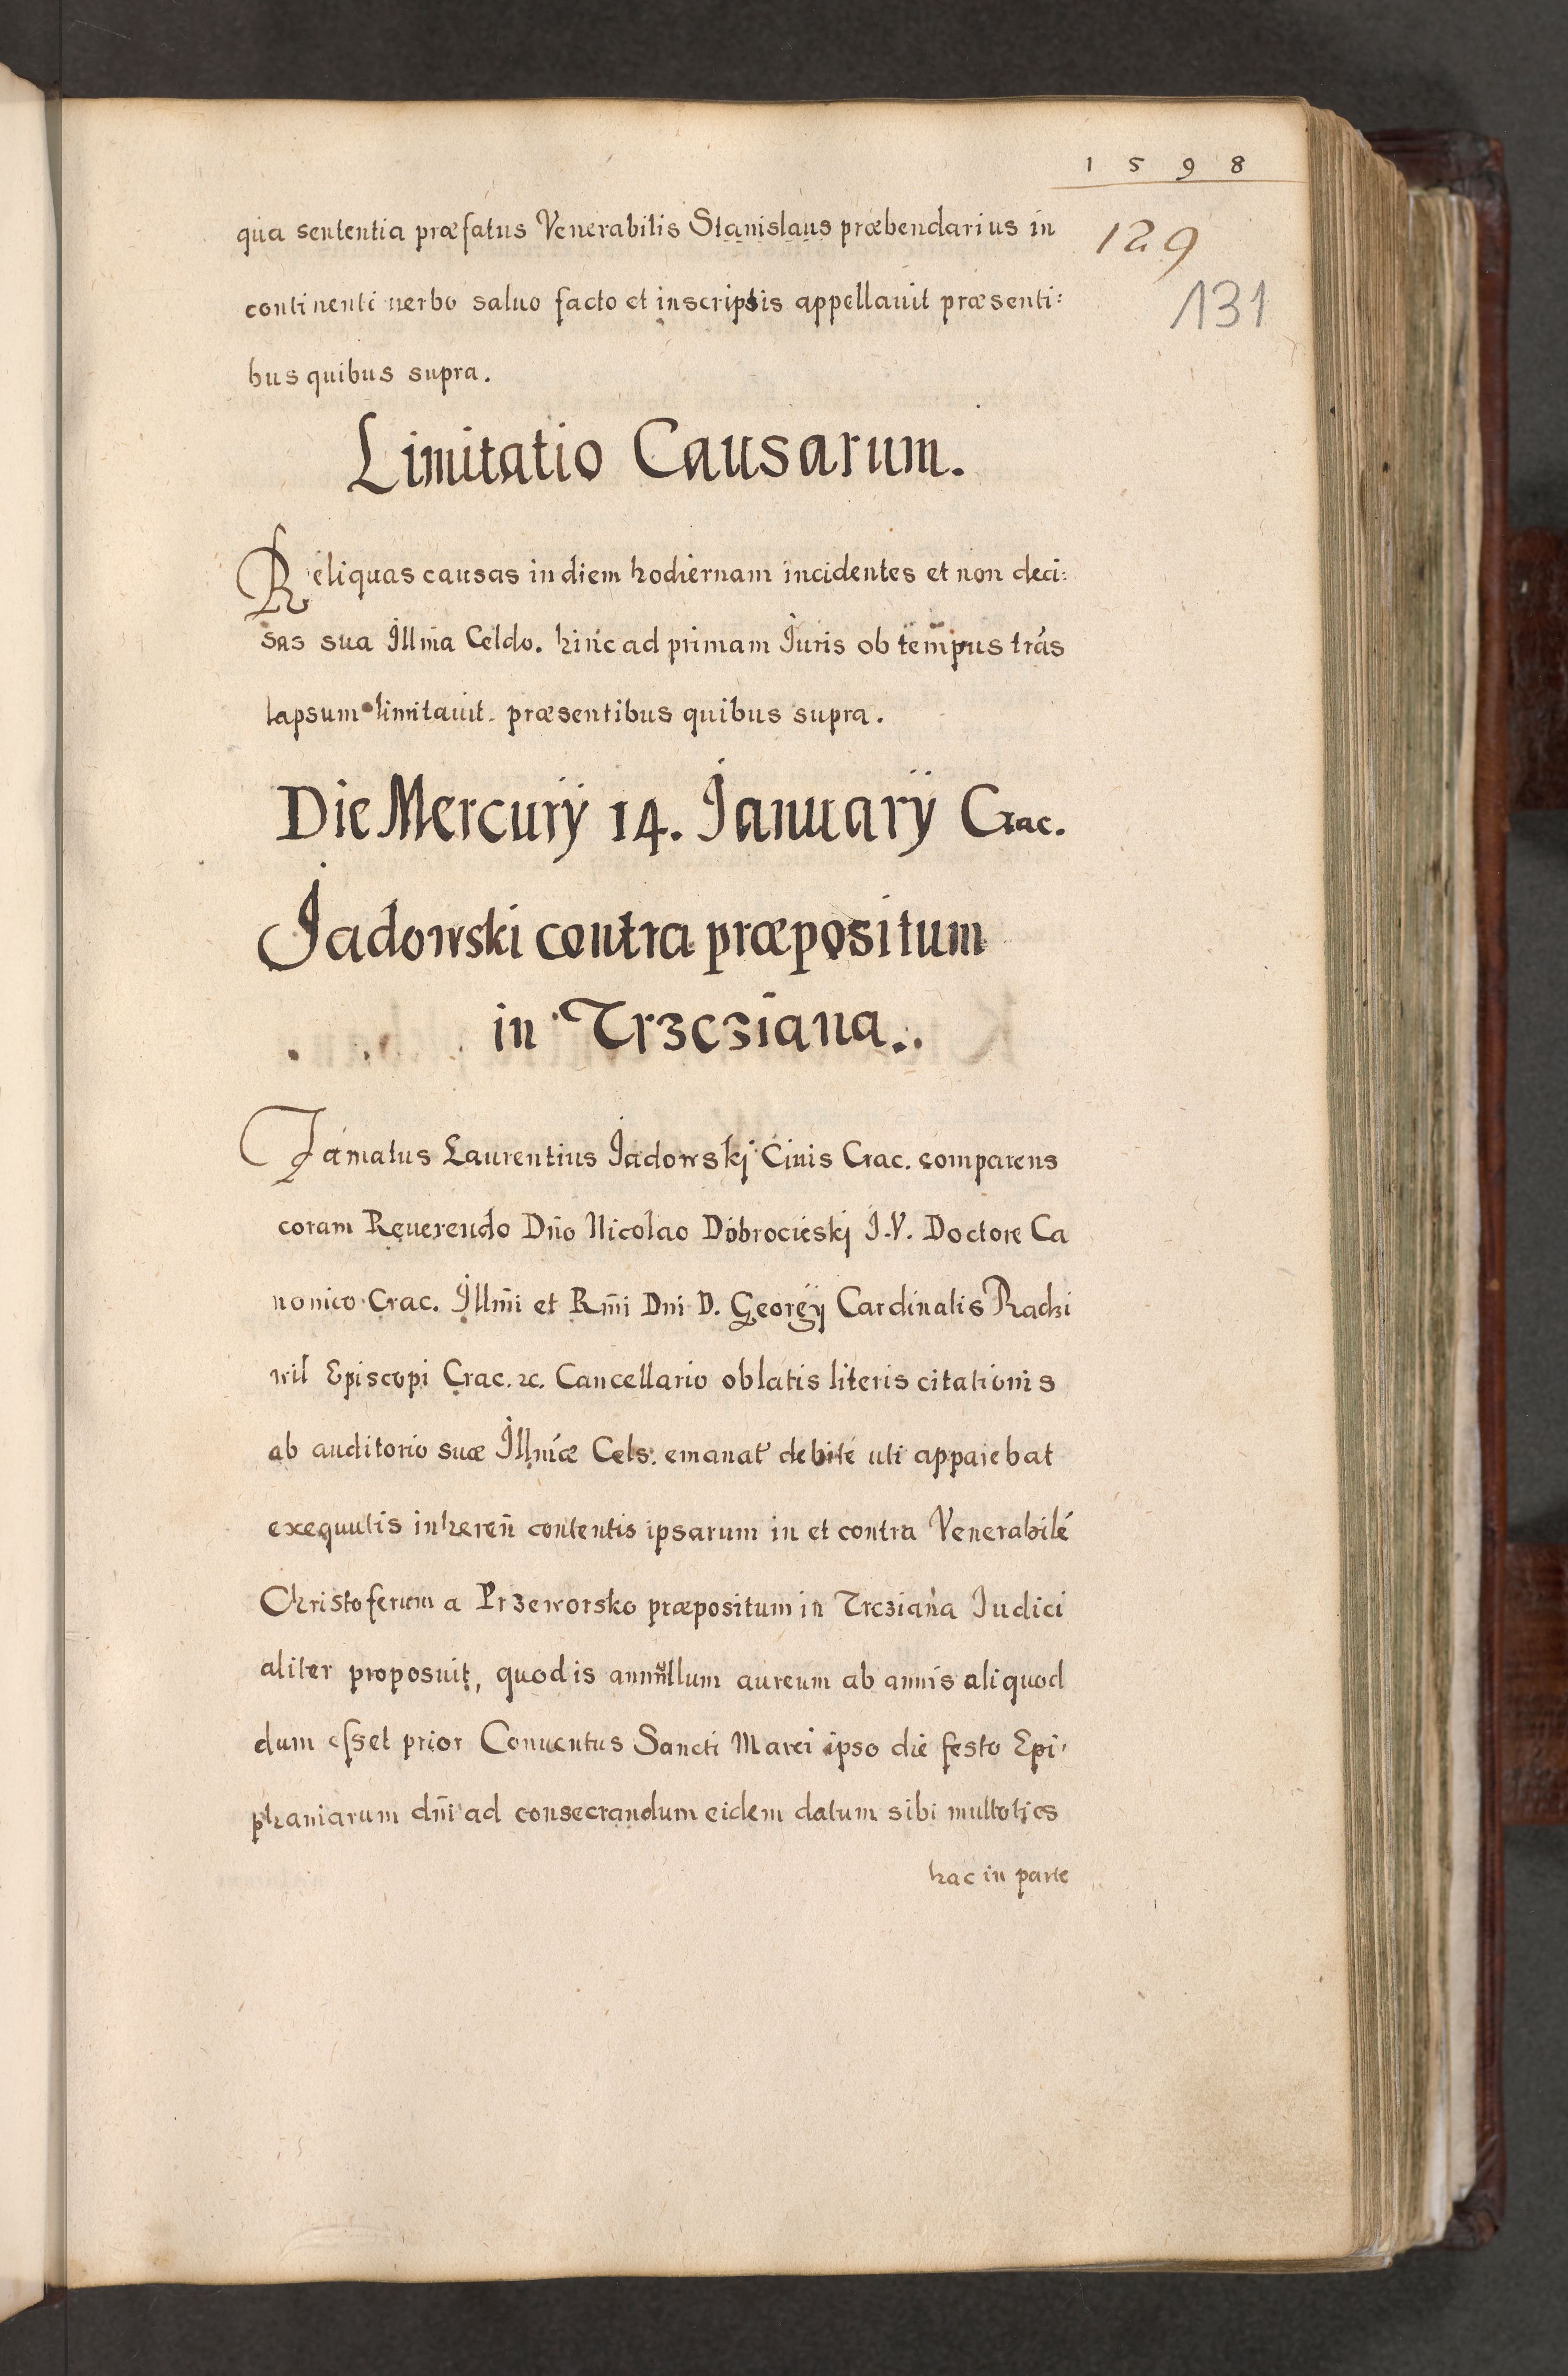 1 5 9 8
129
131
qua sententia præfatus Venerabilis Stanislaus præbendarius in
continenti uerbo saluo facto et inscriptis appellauit præsenti:
bus quibus supra.
Limitatio Causarum.
Reliquas causas in diem hodiernam incidentes et non deci:
sas sua Illma Celdo. hinc ad primam Iuris ob tempus trás
lapsum limitauit. præsentibus quibus supra.
Die Mercurÿ 14. Januarÿ Crac.
Jadowski contra præpositum
in Trzcziana.
Famatus Laurentius Jadowskj Ciuis Crac. comparens
coram Reuerendo Dño Nicolao Dobrocieskj J.V. Doctore Ca
nonico Crac. Illm̃i et Rm̃i Dni D. Georgÿ Cardinalis Radzi
wil Episcopi Crac. &c. Cancellario oblatis literis citationis
ab auditorio suæ Illmæ Cels: emanat̃ debité uti apparebat
exequutis inhereñ contentis ipsarum in et contra Venerabilé
Christoferum a Przeworsko præpositum in Trcziana Iudici
aliter proposuit, quod is annŭllum aureum ab annis aliquod
dum esset prior Conuentus Sancti Marci ipso die festo Epi,
phaniarum dñi ad consecrandum eidem datum sibi multoties
hac in parte